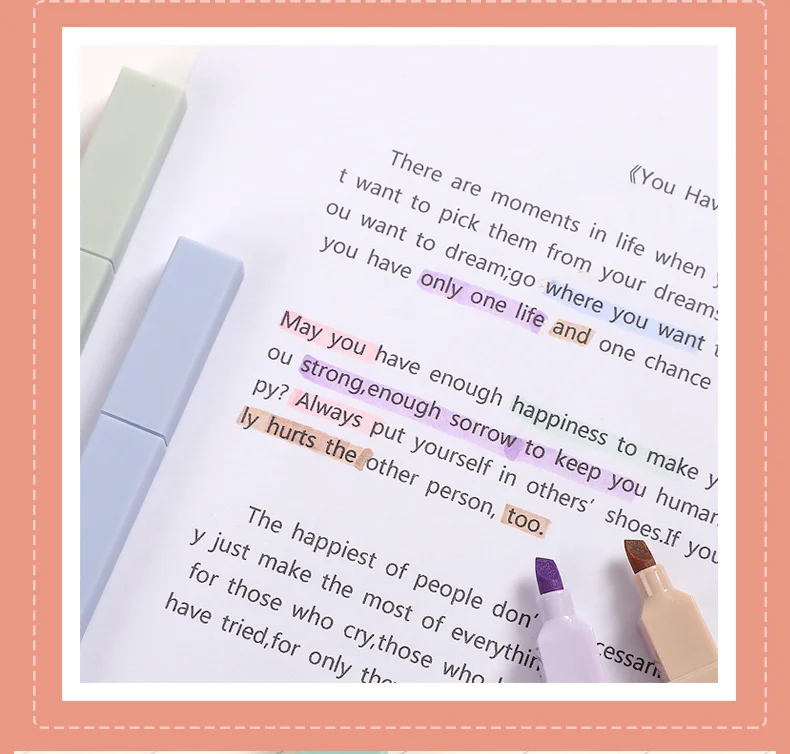 《You Hav
There are moments in life when
t want to pick them from your dreams
ou want to dream;go where you want
you have only one life and one chance
May you have enough happiness to make y
ou strong,enough sorrow to keep you human
py? Always put yourself in others' shoes.If you
ly hurts the other person, too.
The happiest of people don'
y just make the most of everythin cessari
for those who cry,those who
have tried,for only the